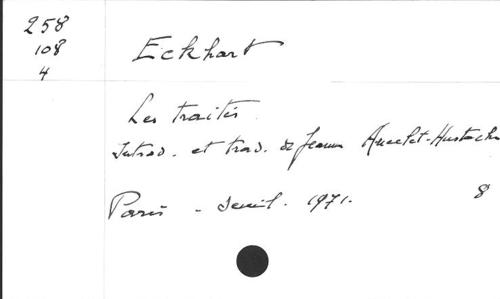 258
108
4
Eckhart
Les traités
Introd. et trad. de Jeanne Ancelet-Hustache
Paris - Seuil. 1971. 8